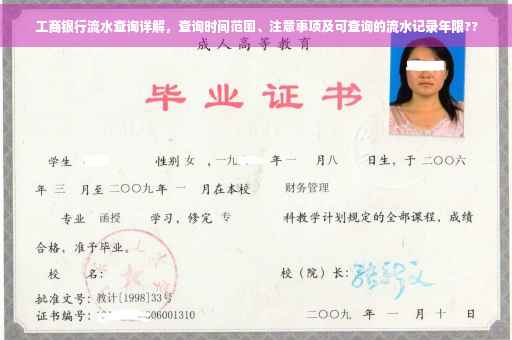 工商银行流水查询详解，查询时间范围、注意事项及可查询的流水记录年限??
成人高等教育
毕业证书
学生 性别 女 ，一九 年 一 月八 日生，于 二〇〇六
年 三 月至 二〇〇九 年 一 月在本校 财务管理
专业 函授 学习，修完 专 科教学计划规定的全部课程，成绩
合格，准予毕业。
校 名： 校（院）长：
批准文号：教计[1998]33号
证书编号： 6006001310 二〇〇九 年 一 月 十 日